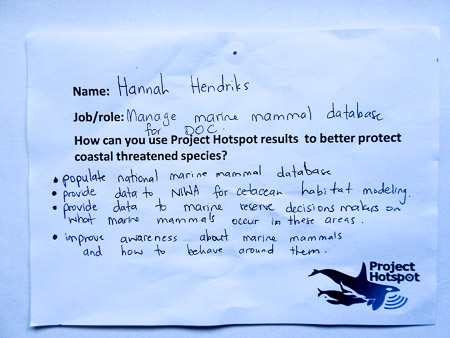 Name: Hannah Hendriks
Job/role: Manage marine mammal database
for DOC.
How can you use Project Hotspot results to better protect
coastal threatened species?
• populate national marine mammal database
• provide data to NIWA for cetacean habitat modeling.
• provide data to marine reserve decisions makers on
what marine mammals occur in these areas.
• improve awareness about marine mammals
and how to behave around them.
Project
Hotspot